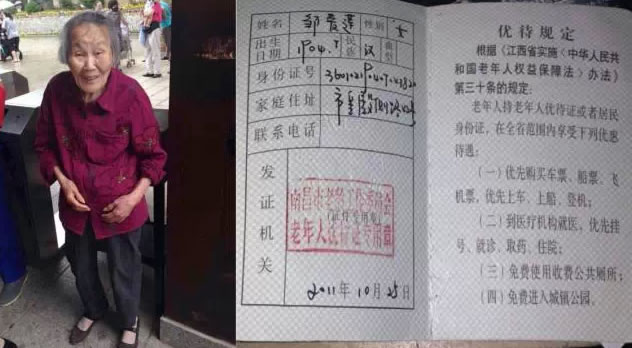 姓名 邹爱莲 性别 女
出生日期 1904.7 民族 汉
身份证号
家庭住址
联系电话
发证机关
南昌市老龄工作委员会
老年人优待证专用章
2011年10月25日
优待规定
根据《江西省实施〈中华人民共
和国老年人权益保障法〉办法》
第三十条的规定:
老年人持老年人优待证或者居民
身份证,在全省范围内享受下列优惠
待遇:
(一)优先购买车票、船票、飞
机票,优先上车、上船、登机;
(二)到医疗机构就医,优先挂
号、就诊、取药、住院;
(三)免费使用收费公共厕所;
(四)免费进入城镇公园。